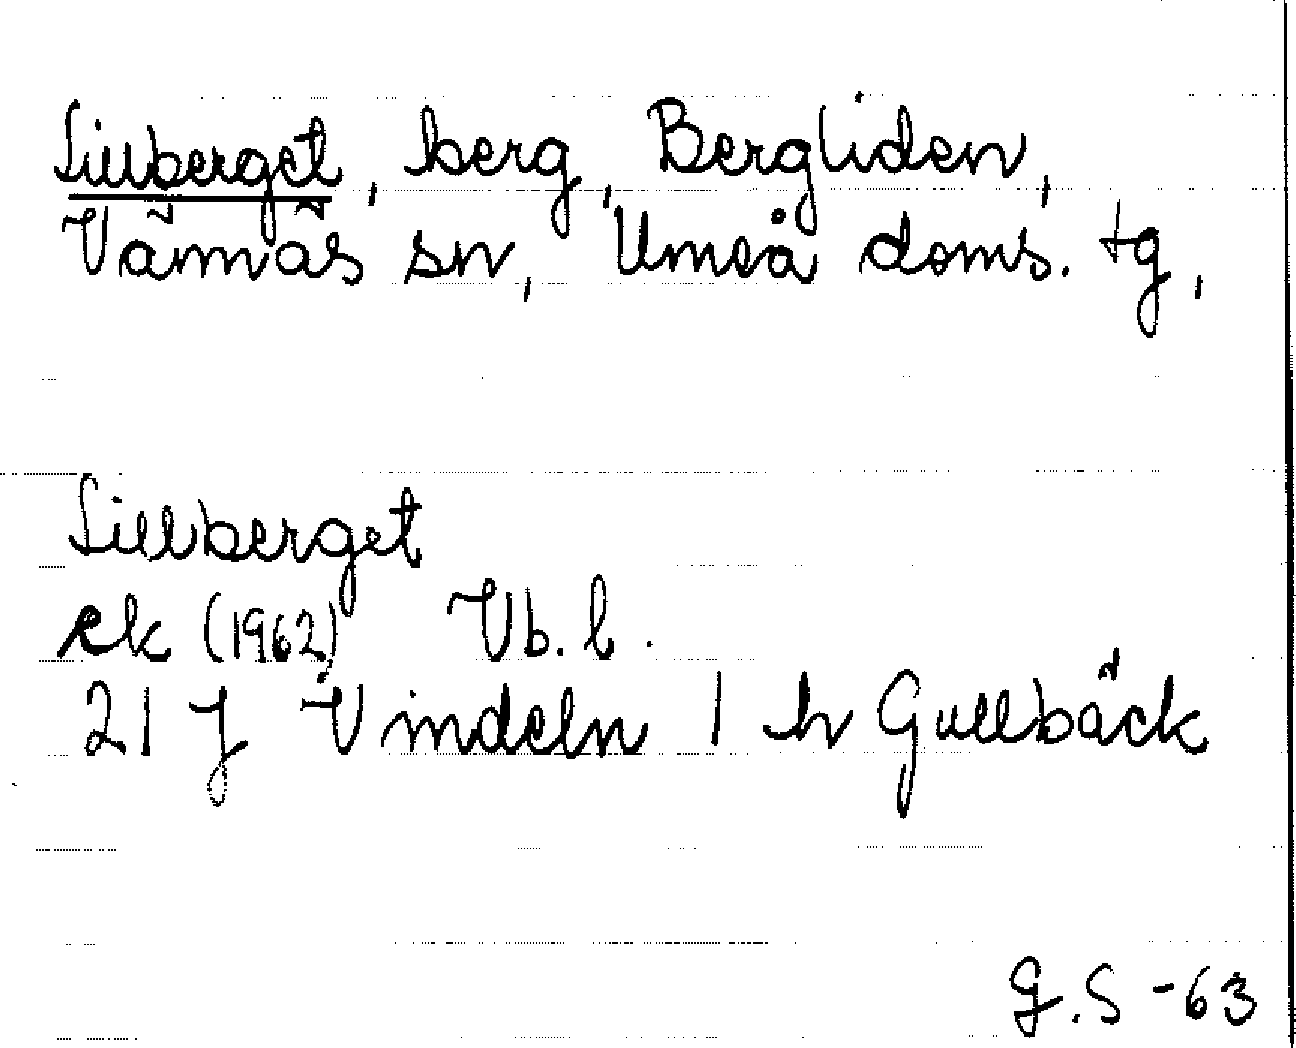 Sillberget, berg, Bergliden,
Vännäs sn, Umeå doms. tg,
Sillberget
ek (1962) Vb. l.
21 J Vindeln 1 h Gullbäck
G.S -63